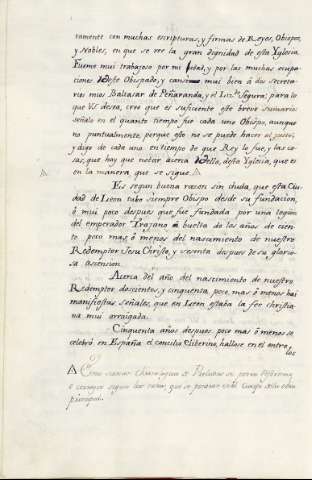 tamente con muchas escripturas, y firmas de Reyes, Obispos,
y Nobles, en que se ver la gran dignidad de esta Yglesia.
Fueme mui trabajoso por mi edad, y por las muchas ocupa-
ciones deste Obispado, y cansé mui bien á dos secreta-
rios mios Baltasar de Peñaranda, y el Liz.do Segura: para lo
que VS. desea, creo que es suficiente este breve sumario:
señalo en el quanto tiempo fue cada uno Obispo, aunque
no puntualmente, porque esto no se puede hacer
y digo de cada uno en tiempo de que Rey lo fue, y las co-
sas, que hay que notar acerca dello, desta Yglesia, que es
en la manera, que se sigue. Δ
Es segun buena razon sin duda, que esta Ciu-
dad de Leon tubo siempre Obispo desde su fundacion,
ó mui poco despues que fue fundada por una legion
del emperador Trajano á buelta de los años de cien-
to poco mas, ó menos del nascimiento de nuestro
Redemptor Jesu Christo, y sesenta despues de su glorio-
sa ascension.
Acerca del año del nascimiento de nuestro
Redemptor doscientos, y cinquenta poco mas, ó menos hai
manifiestas señales, que en Leon estaba la fee christia-
na mui arraigada.
Cinquenta años despues poco mas ó menos se
celebró en España el concilio Eliberino, hallose en el entre
los
Δ
segun las notas, que se pondran en el Cuerpo de la obra
principal.